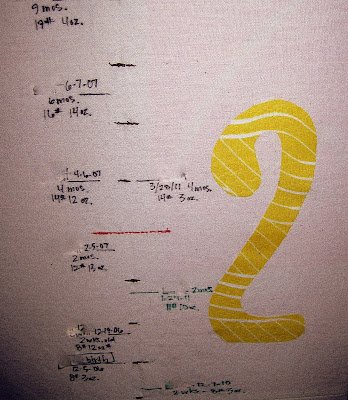 9 mos.
19# 4oz.
6-7-07
6 mos.
16# 14oz.
4-6-07
4 mos.
14# 12 oz.
3/28/11 4 mos
14# 3 oz.
2-5-07
2 mos.
12# 13 oz.
2 mos
1-29-11
11# 10oz.
12-19-06
2 wks. old
8# 12oz
birth
12-5-06
8# 3oz.
12-7-10
2 wks - 8# 5oz.
2